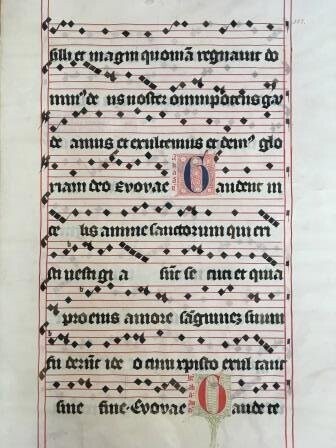 silli et magni quoniã regnauit do
minꝰ de us noster omnipotens gau
de amus et exultemus et demꝰ glo
riam deo Evovae Gaudent in
ce lis anime sanctorum qui cri
sti vesti gi a sũt se cuti et quia
pro eius amore sãguinez suum
fu derũt ide o cum xpisto exul tant
sine fine. Evovae Gaude te